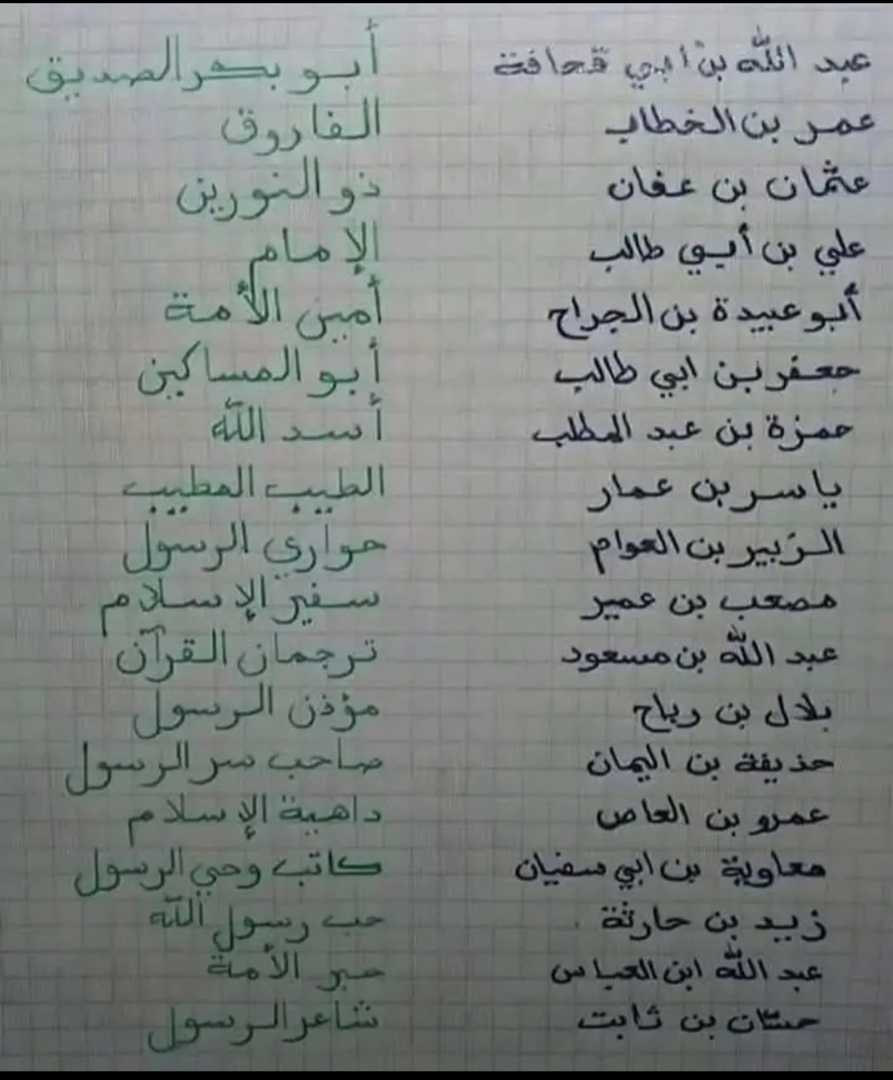 عبد الله بن أبي قحافة أبو بكر الصديق
عمر بن الخطاب الفاروق
عثمان بن عفان ذو النورين
علي بن أبي طالب الإمام
أبو عبيدة بن الجراح أمين الأمة
جعفر بن ابي طالب أبو المساكين
حمزة بن عبد المطلب أسد الله
ياسر بن عمار الطيب المطيب
الزبير بن العوام حواري الرسول
مصعب بن عمير سفير الإسلام
عبد الله بن مسعود ترجمان القرآن
بلال بن رباح مؤذن الرسول
حذيفة بن اليمان صاحب سر الرسول
عمرو بن العاص داهية الإسلام
معاوية بن ابي سفيان كاتب وحي الرسول
زيد بن حارثة حب رسول الله
عبد الله ابن العباس حبر الأمة
حسّان بن ثابت شاعر الرسول